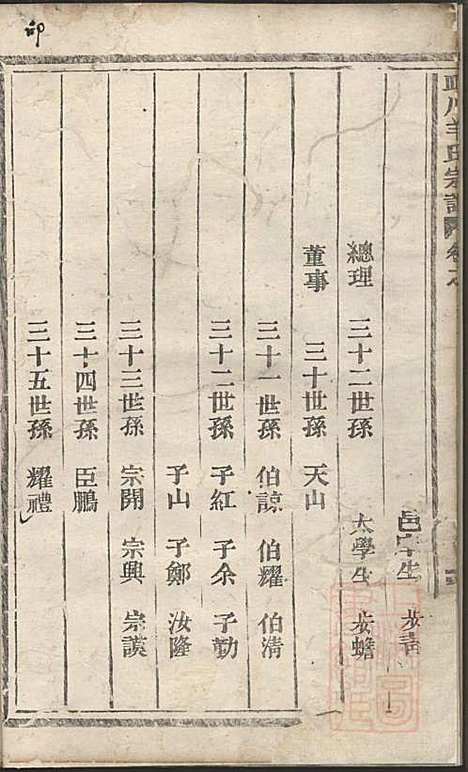 氏宗譜 卷之
邑庠生 步青
總理 三十二世孫 太學生 步蟾
董事 三十世孫 天山
三十一世孫 伯諒 伯耀 伯清
三十二世孫 子紅 子余 子勤
子山 子鄭 汝隆
三十三世孫 宗開 宗興 宗謨
三十四世孫 臣鵬
三十五世孫 耀禮